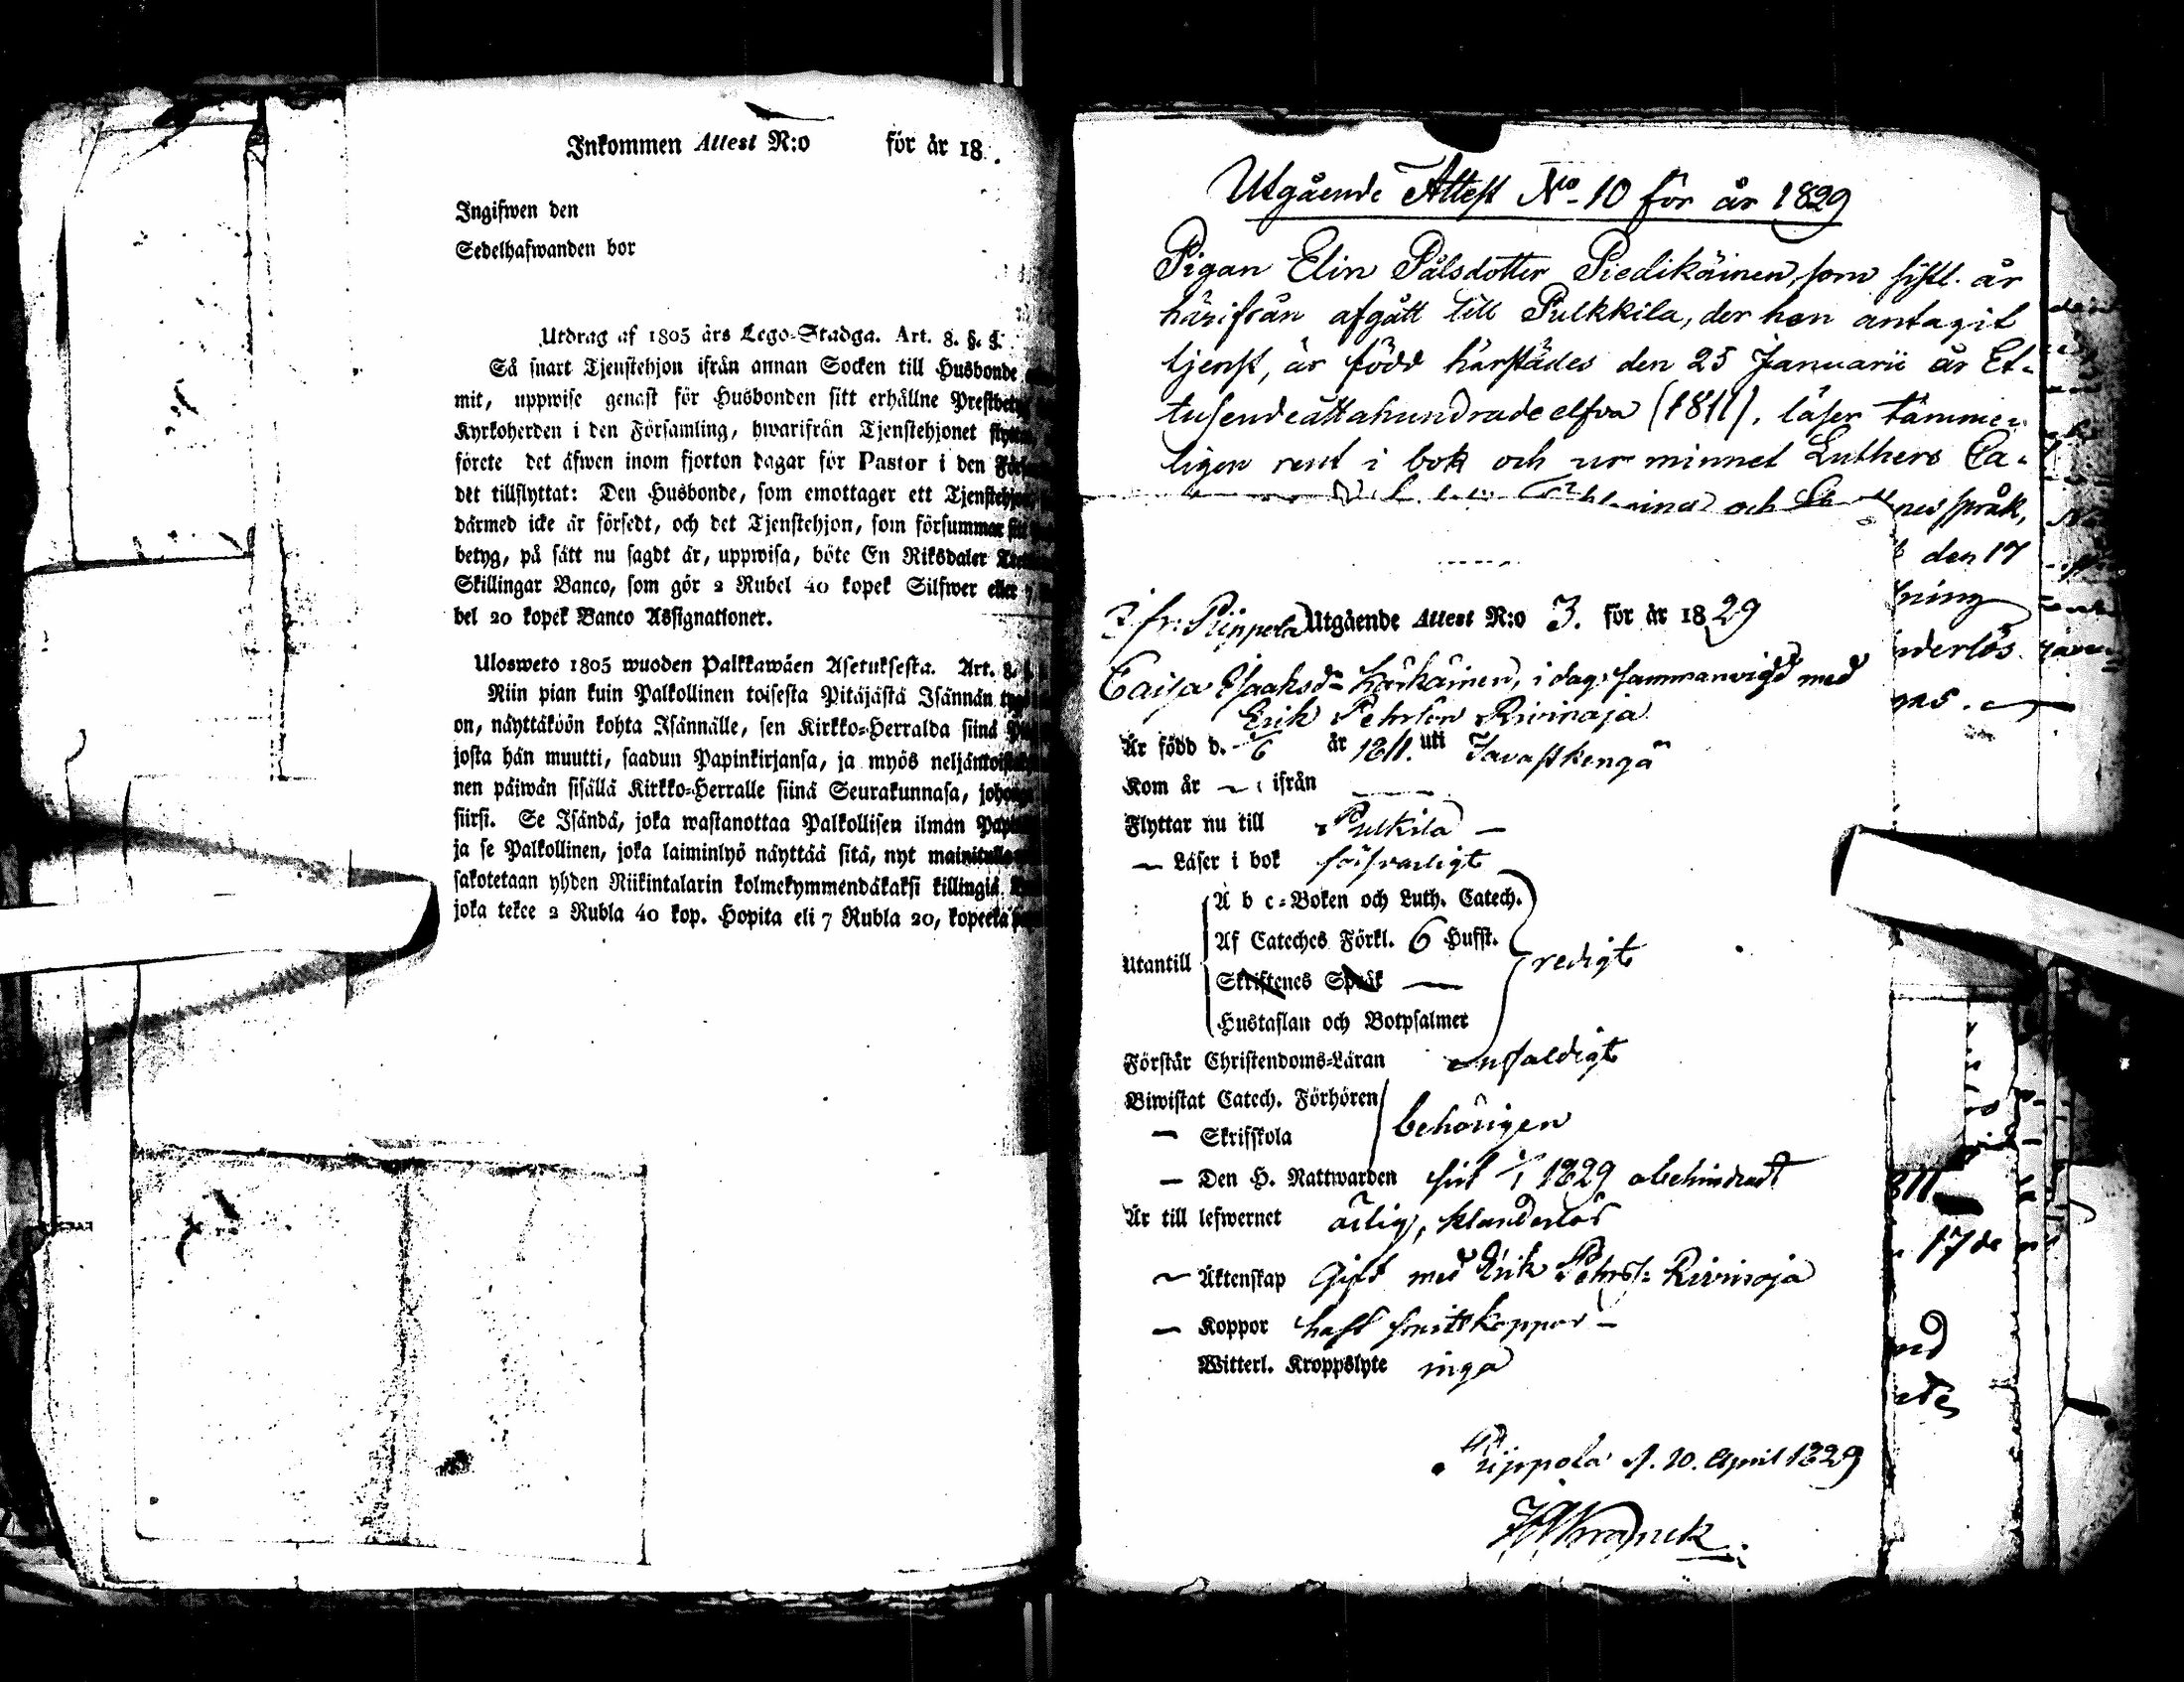 Inkommen Attest N:o för år 18 .
Ingifwen den
Sedelhafwanden bor
Utdrag af 1805 års Lego-Stadga. Art. 8. §.
Så snart Tjenstehjon ifrån annan Socken till Husbonde
mit, uppwise genast för Husbonden sitt erhållne Prestbet
Kyrkoherden i den Församling, hwarifrån Tjenstehjonet flytta
förete det äfwen inom fjorton dagar för Pastor i den För
det tillflyttat: Den Husbonde, som emottager ett Tjenstehjon
därmed icke är försedt, och det Tjenstehjon, som försummar sitt
betyg, på sätt nu sagdt är, uppwisa, böte En Riksdaler
Skillingar Banco, som gör 2 Rubel 40 kopek Silfwer eller 7
bel 20 kopek Banco Assignationer.
Ulosweto 1805 wuoden Palkkawäen Asetuksesta. Art. 8.
Niin pian kuin Palkollinen toisesta Pitäjästä Isännän
on, näyttäköön kohta Isännälle, sen Kirkko-Herralda siinä
josta hän muutti, saadun Papinkirjansa, ja myös neljäntois
nen päiwän sisällä Kirkko-Herralle siinä Seurakunnasa, johon
siirsi. Se Isändä, joka wastanottaa Palkollisen ilman Pap
ja se Palkollinen, joka laiminlyö näyttää sitä, nyt mainitulla
sakotetaan yhden Riikintalarin kolmekymmendäkaksi killingiä
joka tekee 2 Rubla 40 kop. Hopita eli 7 Rubla 20, kopeeka
Utgående Attest No 10 för år 1829
Pigan Elin Pålsdotter Piedikäinen, som sistl. år
härifrån afgått till Pulkkila, der hon antagit
tjenst, är född härstädes den 25 Januarii år Et-
tusendeåttahundradeelfva (1811), läser tämme-
ligen rent i bok och ur minnet Luthers Ca-
och nes språk,
den 17
ning
nderlös.
Utgående Attest N:o 3. för år 1829
fr: Piippola
Caisa Isaksdr Kärkäinen, i dag sammanvigd med
Erik Pehrson Rivinoja
Är född d. år 1811. uti Tavastkengä
Kom år — ifrån —
Flyttar nu till Pulkila —
— Läser i bok försvarligt
A b c-Boken och Luth. Catech.
Af Cateches Förkl. 6 Hufst.
Utantill redigt
Skriftenes Språk —
Hustaflan och Botpsalmer
Förstår Christendoms-Läran enfaldigt
Biwistat Catech. Förhören
behörigen
— Skrifskola
— Den H. Nattwarden sist 1829 obehindradt
Är till lefwernet ärlig, klanderlös
— Äktenskap Gift med Erik Pehrss: Rivinoja
— Koppor haft smittkoppor —
Witterl. Kroppslyte inga
Piippola d. 20. April 1829
811
17de